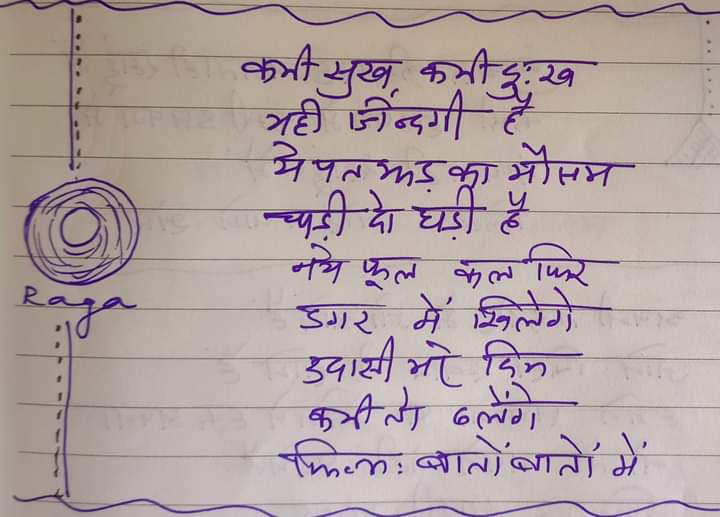 कभी सुख, कभी दुःख
यही ज़िन्दगी है
ये पतझड़ का मौसम
घड़ी दो घड़ी है
नये फूल कल फिर
डगर में खिलेंगे
उदासी भरे दिन
कभी तो ढलेंगे
फिल्म: बातों बातों में
Raga